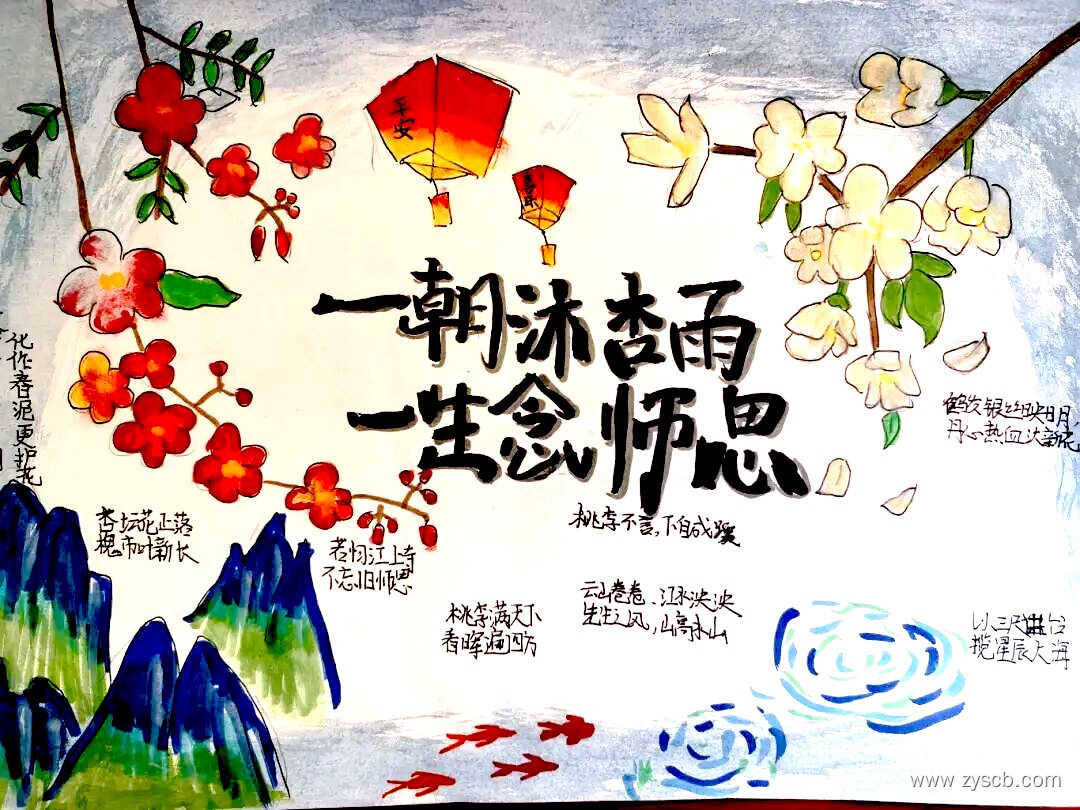 平安
一朝沐杏雨
一生念师恩
化作春泥更护花
杏坛花正落
槐市叶新长
不忘旧师恩
桃李不言,下自成蹊
桃李满天下
春晖遍四方
云山卷卷、江水泱泱
先生之风,山高水山
丹心热血沃新花
以三尺讲台
揽星辰大海
www.zyscb.com